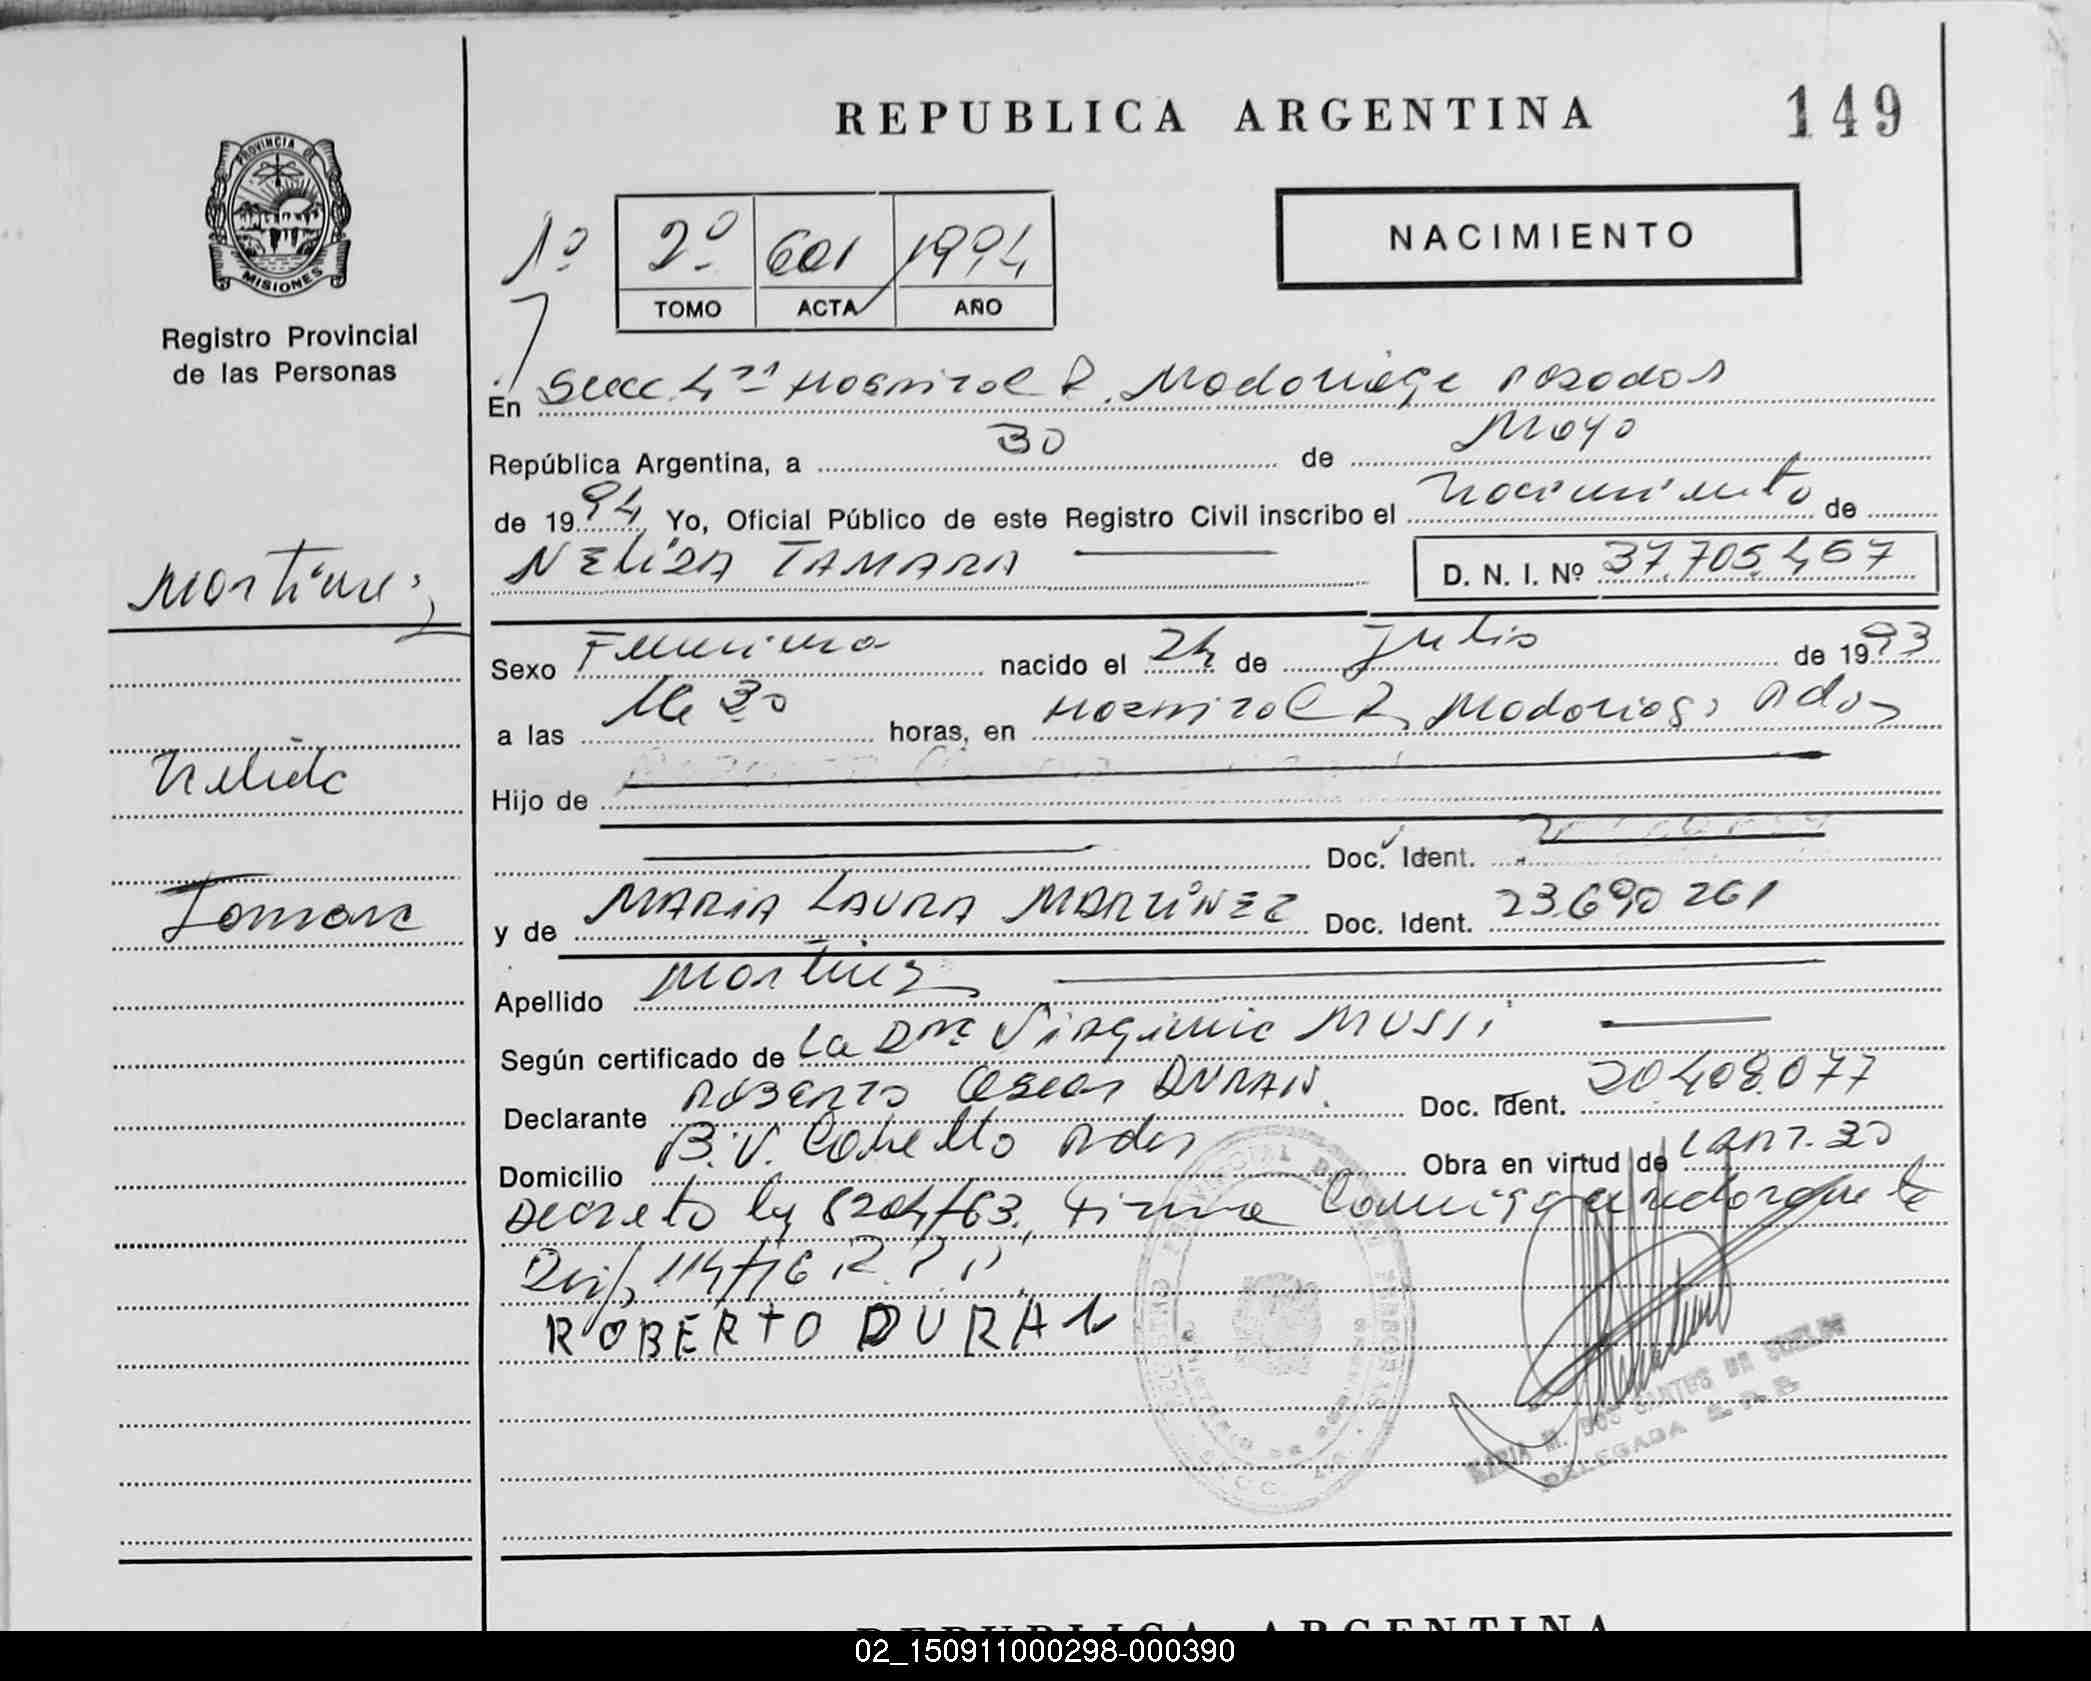 REPUBLICA ARGENTINA
149
PROVINCIA DE
MISIONES
Registro Provincial
de las Personas
1º
2º 601 1994
TOMO ACTA AÑO
NACIMIENTO
En Secc 4ta Hospital R. Madariaga Posadas
República Argentina, a 30 de Mayo
de 1994 Yo, Oficial Público de este Registro Civil inscribo el nacimiento de
NELIDA TAMARA
D. N. I. Nº 37.705.467
Martinez
Nelida
Tamara
Sexo Femenino nacido el 24 de Julio de 1993
a las 16 30 horas, en Hospital R. Madariaga Pdas
Hijo de
Doc. Ident.
y de MARIA LAURA MARTINEZ Doc. Ident. 23.690 261
Apellido Martinez
Según certificado de La Dra Virginia MUSSI
Declarante ROBERTO Oscar DURAN. Doc. Ident. 20.408.077
Domicilio B.V. Pdas Obra en virtud de art. 30
Decreto ley 8204/63. Firma Conmigo
Disp. 114/76 R.P.P.
ROBERTO DURAN
MARIA M. DOS SANTOS DE
DELEGADA R. P. P.
REPUBLICA ARGENTINA
02_150911000298-000390